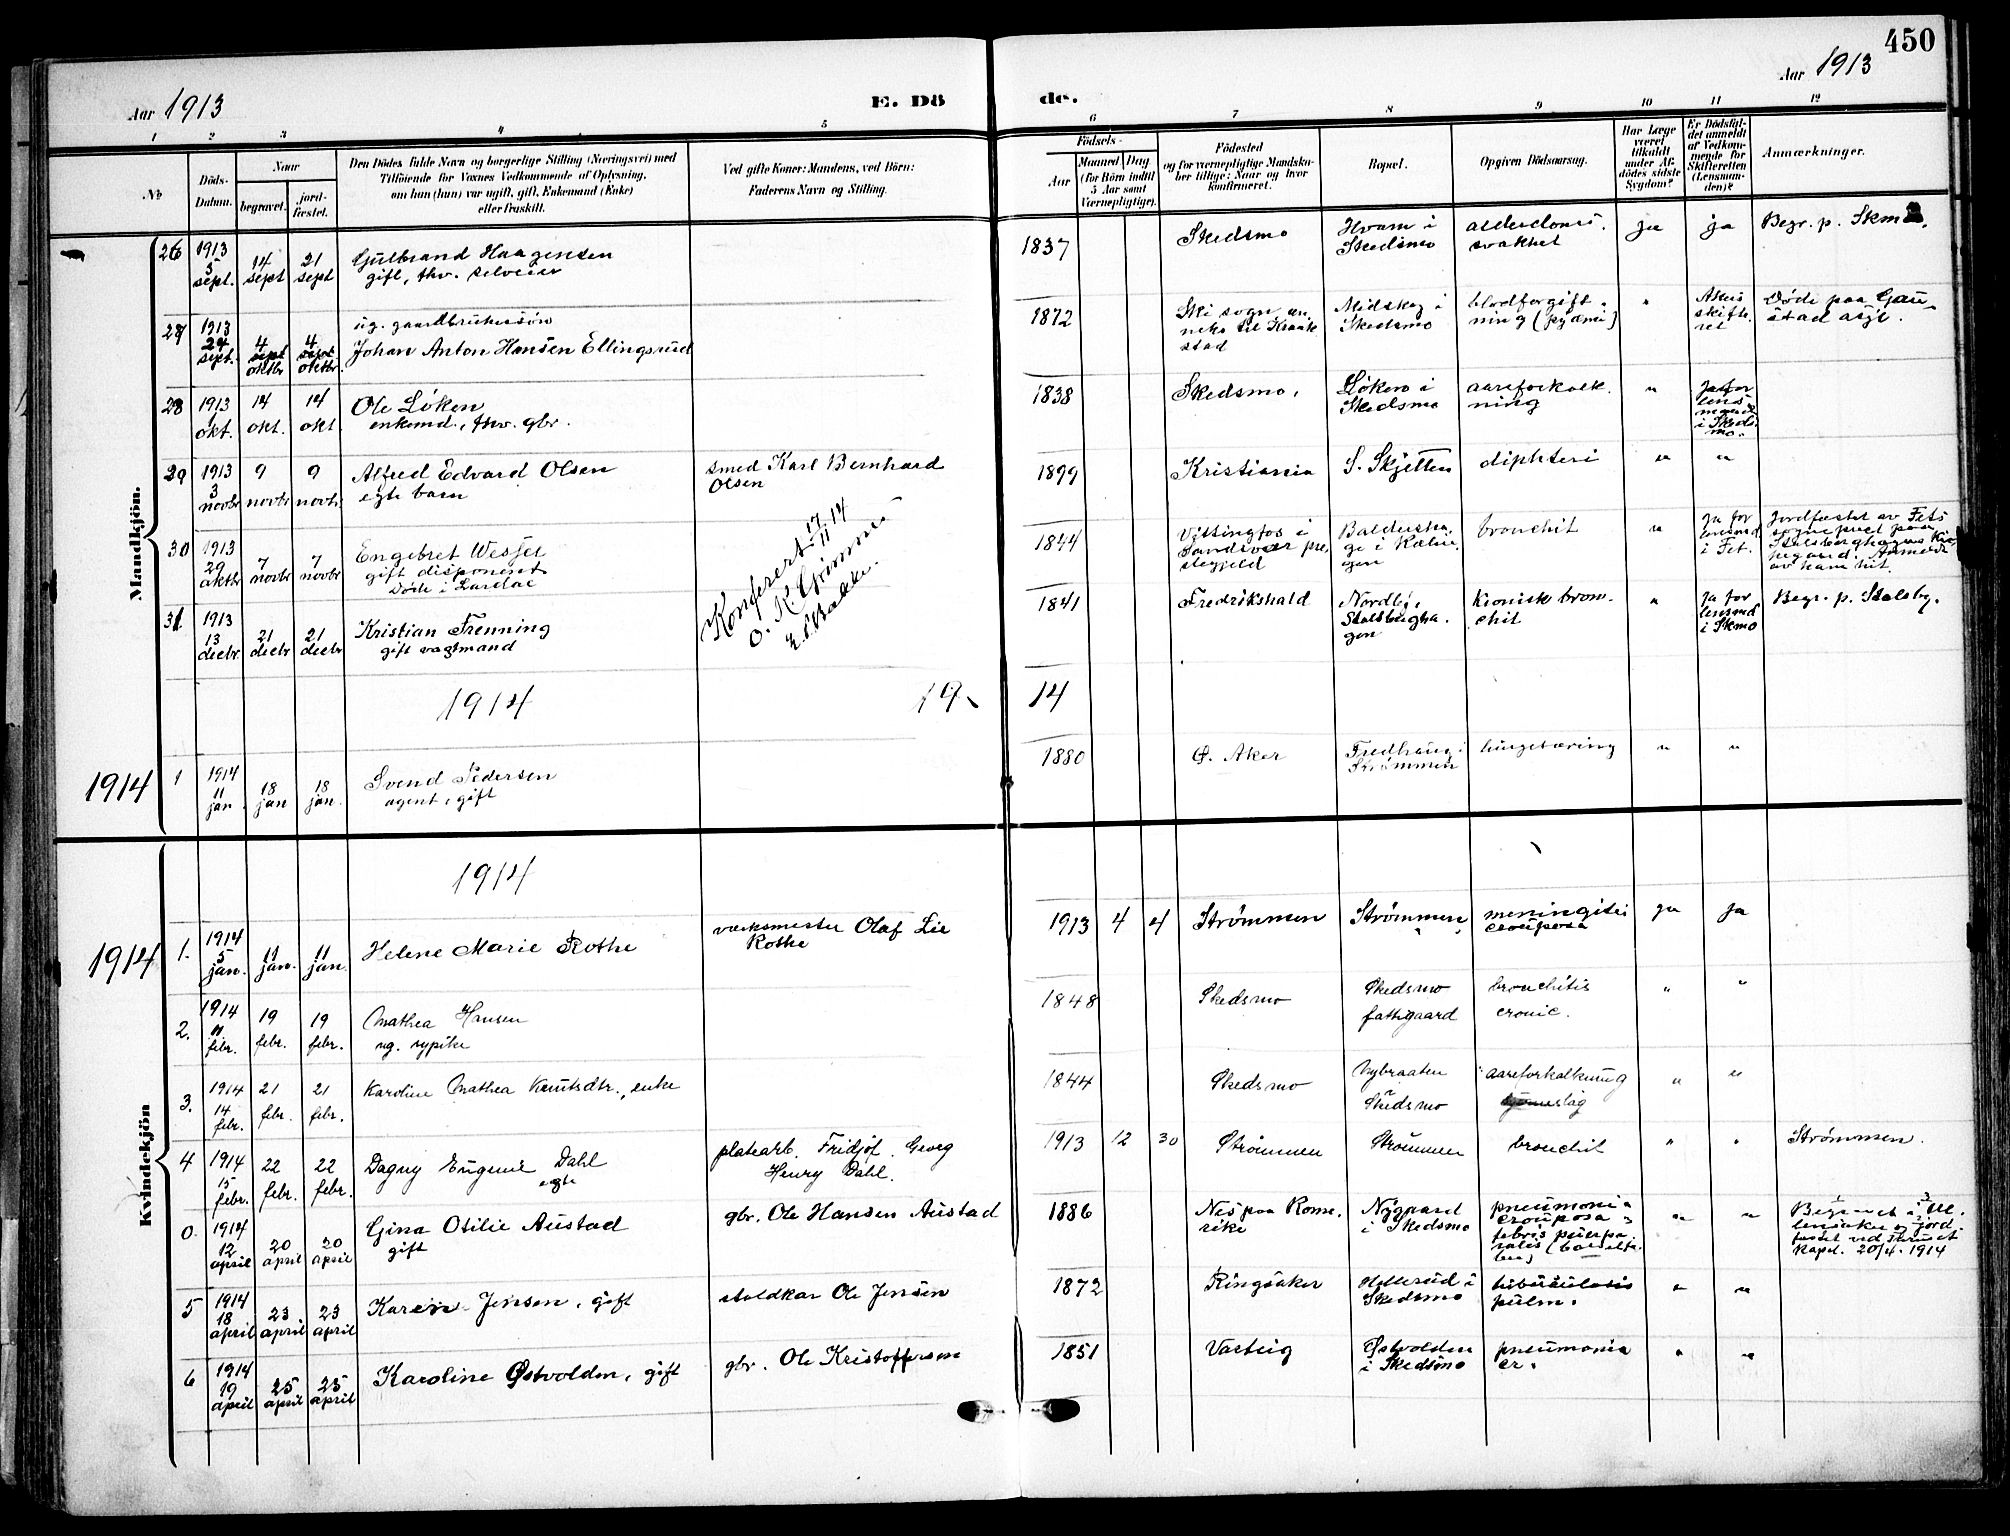 450
Aar 1913
E. Dö
de.
Aar 1913
1 2 3 4 5 6 7 8 9 10 11 12
No
Döds-Datum.
Naar
begravet.
jordfæstet.
Den Dödes fulde Navn og borgerlige Stilling (Næringsvei) med
Tilföiende for Voxnes Vedkommende af Oplysning,
om han (hun) var ugift, gift, Enkemand (Enke)
eller fraskilt.
Ved gifte Koner: Mandens, ved Börn:
Faderens Navn og Stilling.
Födsels-
Aar
Maaned Dag
(for Börn indtil
5 Aar samt
Værnepligtige).
Födested
og for værnepligtige Mandskaber tillige: Naar og hvor
konfirmeret.
Bopæl.
Opgiven Dödsaarsag.
Har Læge været tilkaldt under Afdödes sidste Sygdom?
Er Dödsfaldet anmeldt af Vedkommende for Skifteretten (Lensmanden)?
Anmærkninger.
Mandkjön.
26 1913 5 sept. 14 sept 21 sept Gulbrand Haagensen
gift, fhv. selveier
1837 Skedsmo Hvam i Skedsmo alderdoms. svakhet ja ja Begr. p. Skmo.
27 1913 24 sept. 4 sept oktbr 4 sept oktbr. ug. gaardbrukersøn
Johan Anton Hansen Ellingsrud
1872 Ski sogn anneks til Kraakstad Midskog i Skedsmo blodforgiftning (pyæmi) " Akers skifteret Døde paa Gaustad asyl.
28 1913 1 okt. 14 okt. 14 okt Ole Løken
enkemd., fhv. gbr.
1838 Skedsmo. Løken i Skedsmo aareforkalkning " Ja for lensmand i Skedsmo.
29 1913 3 novbr 9 novbr 9 novbr. Alfred Edvard Olsen
egte barn
smed Karl Bernhard Olsen
1899 Kristiania S. Skjetten difteri " "
30 1913 29 oktbr 7 novbr 7 novbr Engebret Wessel
gift disponent
Døde i Lardal
1844 Vittingfos i Sandsvær prestegjeld bronchit " Ja for lensmd i Fet.
Jordfæstet av Fets sogneprest paa
31. 1913 13 decbr. 21 decbr 21 decbr Kristian Frenning
gift vagtmand
1841 Fredrikshald Nordby, Stalsberghagen kronisk bronchit " Ja for lensmd i Skmo Begr. p. Stalsby.
Konferert 17/11 14
1914
19
14
1914
1 1914 11 jan 18 jan 18 jan. Svend Pedersen
agent, gift
1880 Ø. Aker Fredhaug. Strømmen lungetæring " "
Kvindekjön
1914
1914
1. 1914 5 jan. 11 jan. 11 jan. Helene Marie Rothe
værksmester Olaf Lie Rothe
1913 4 4 Strømmen Strømmen meningitis crouposa ja ja
2. 1914 11 febr. 19 febr. 19 febr. Mathea Hansen
ug. sypike
1848 Skedsmo Skedsmo fattigaard bronchitis cronic. " "
3. 1914 14 febr. 21 febr. 21 febr. Karoline Mathea Knutsdtr., enke
1844 Skedsmo Nybraaten Skedsmo aareforkalkning " "
4 1914 15 febr. 22 febr. 22 febr. Dagny Eugenie Dahl
egte
platearb. Fridjof Georg Henry Dahl.
1913 12 30 Strømmen Strømmen bronchit " " Strømmen.
0. 1914 12 april 20 april 20 april Gina Otilie Austad
gift
gbr. Ole Hansen Austad
1886 Nes paa Romerike Nygaard i Skedsmo pneumonia crouposa, febris puerperalis " "
Begravet i Ullensaker og jordfæstet ved kapel. 20/4 - 1914
5 1914 18 april 23 april 23 april Karen Jensen, gift
staldkar Ole Jensen
1872 Ringsaker i Skedsmo tuberculosis pulm. " "
6 1914 19 april 25 april 25 april Karoline Østvolden, gift
gbr. Ole Kristoffersen
1851 Varteig Østvolden i Skedsmo pneumonia cr. " "